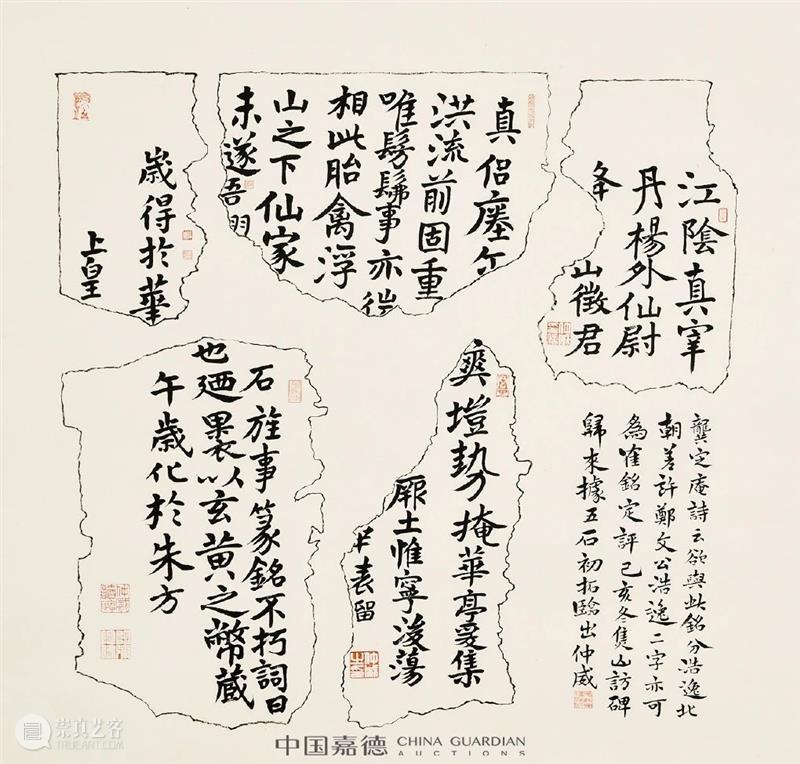 江陰真宰
丹楊外仙尉
夅 山徵君
真侶瘞尔
洪流前固重
唯髣髴事亦徃
相此胎禽浮
山之下仙家
未遂吾
歲得於華
上皇
爽塏勢掩華亭爰集
厥土惟寧浚蕩
表留
石旌事篆銘不朽詞曰
也迺裹以玄黃之幣藏
午歲化於朱方
龔定庵詩云欲與此銘分浩逸北
朝差許鄭文公浩逸二字亦可
為隺銘定評己亥冬焦山訪碑
歸來據五石初拓臨出仲威
崇真艺客
TRUEART.COM
中国嘉德 CHINA GUARDIAN
AUCTIONS